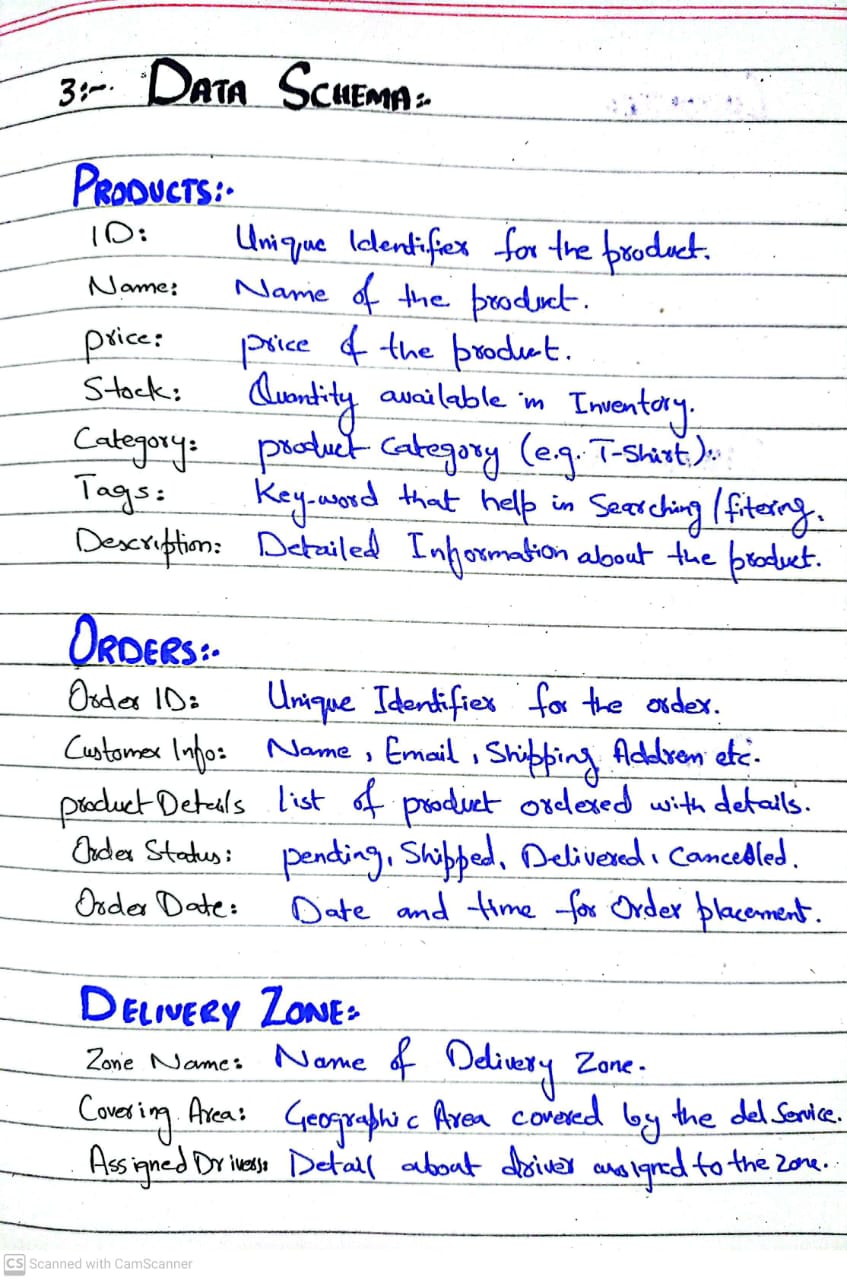 3:-. DATA SCHEMA:-
PRODUCTS:-
ID: Unique Identifier for the product.
Name: Name of the product.
price: price of the product.
Stock: Quantity available in Inventory.
Category: product Category (e.g. T-Shirt).
Tags: Key-word that help in Searching / fitering.
Description: Detailed Information about the product.
ORDERS:-
Order ID: Unique Identifier for the order.
Customer Info: Name, Email, Shipping Address etc.
product Details list of product ordered with details.
Order Status: pending, Shipped, Delivered, Cancelled.
Order Date: Date and time for Order placement.
DELIVERY ZONE:-
Zone Name: Name of Delivery Zone.
Covering Area: Geographic Area covered by the del Service.
Assigned Drivers: Detail about driver assigned to the zone.
CS Scanned with CamScanner